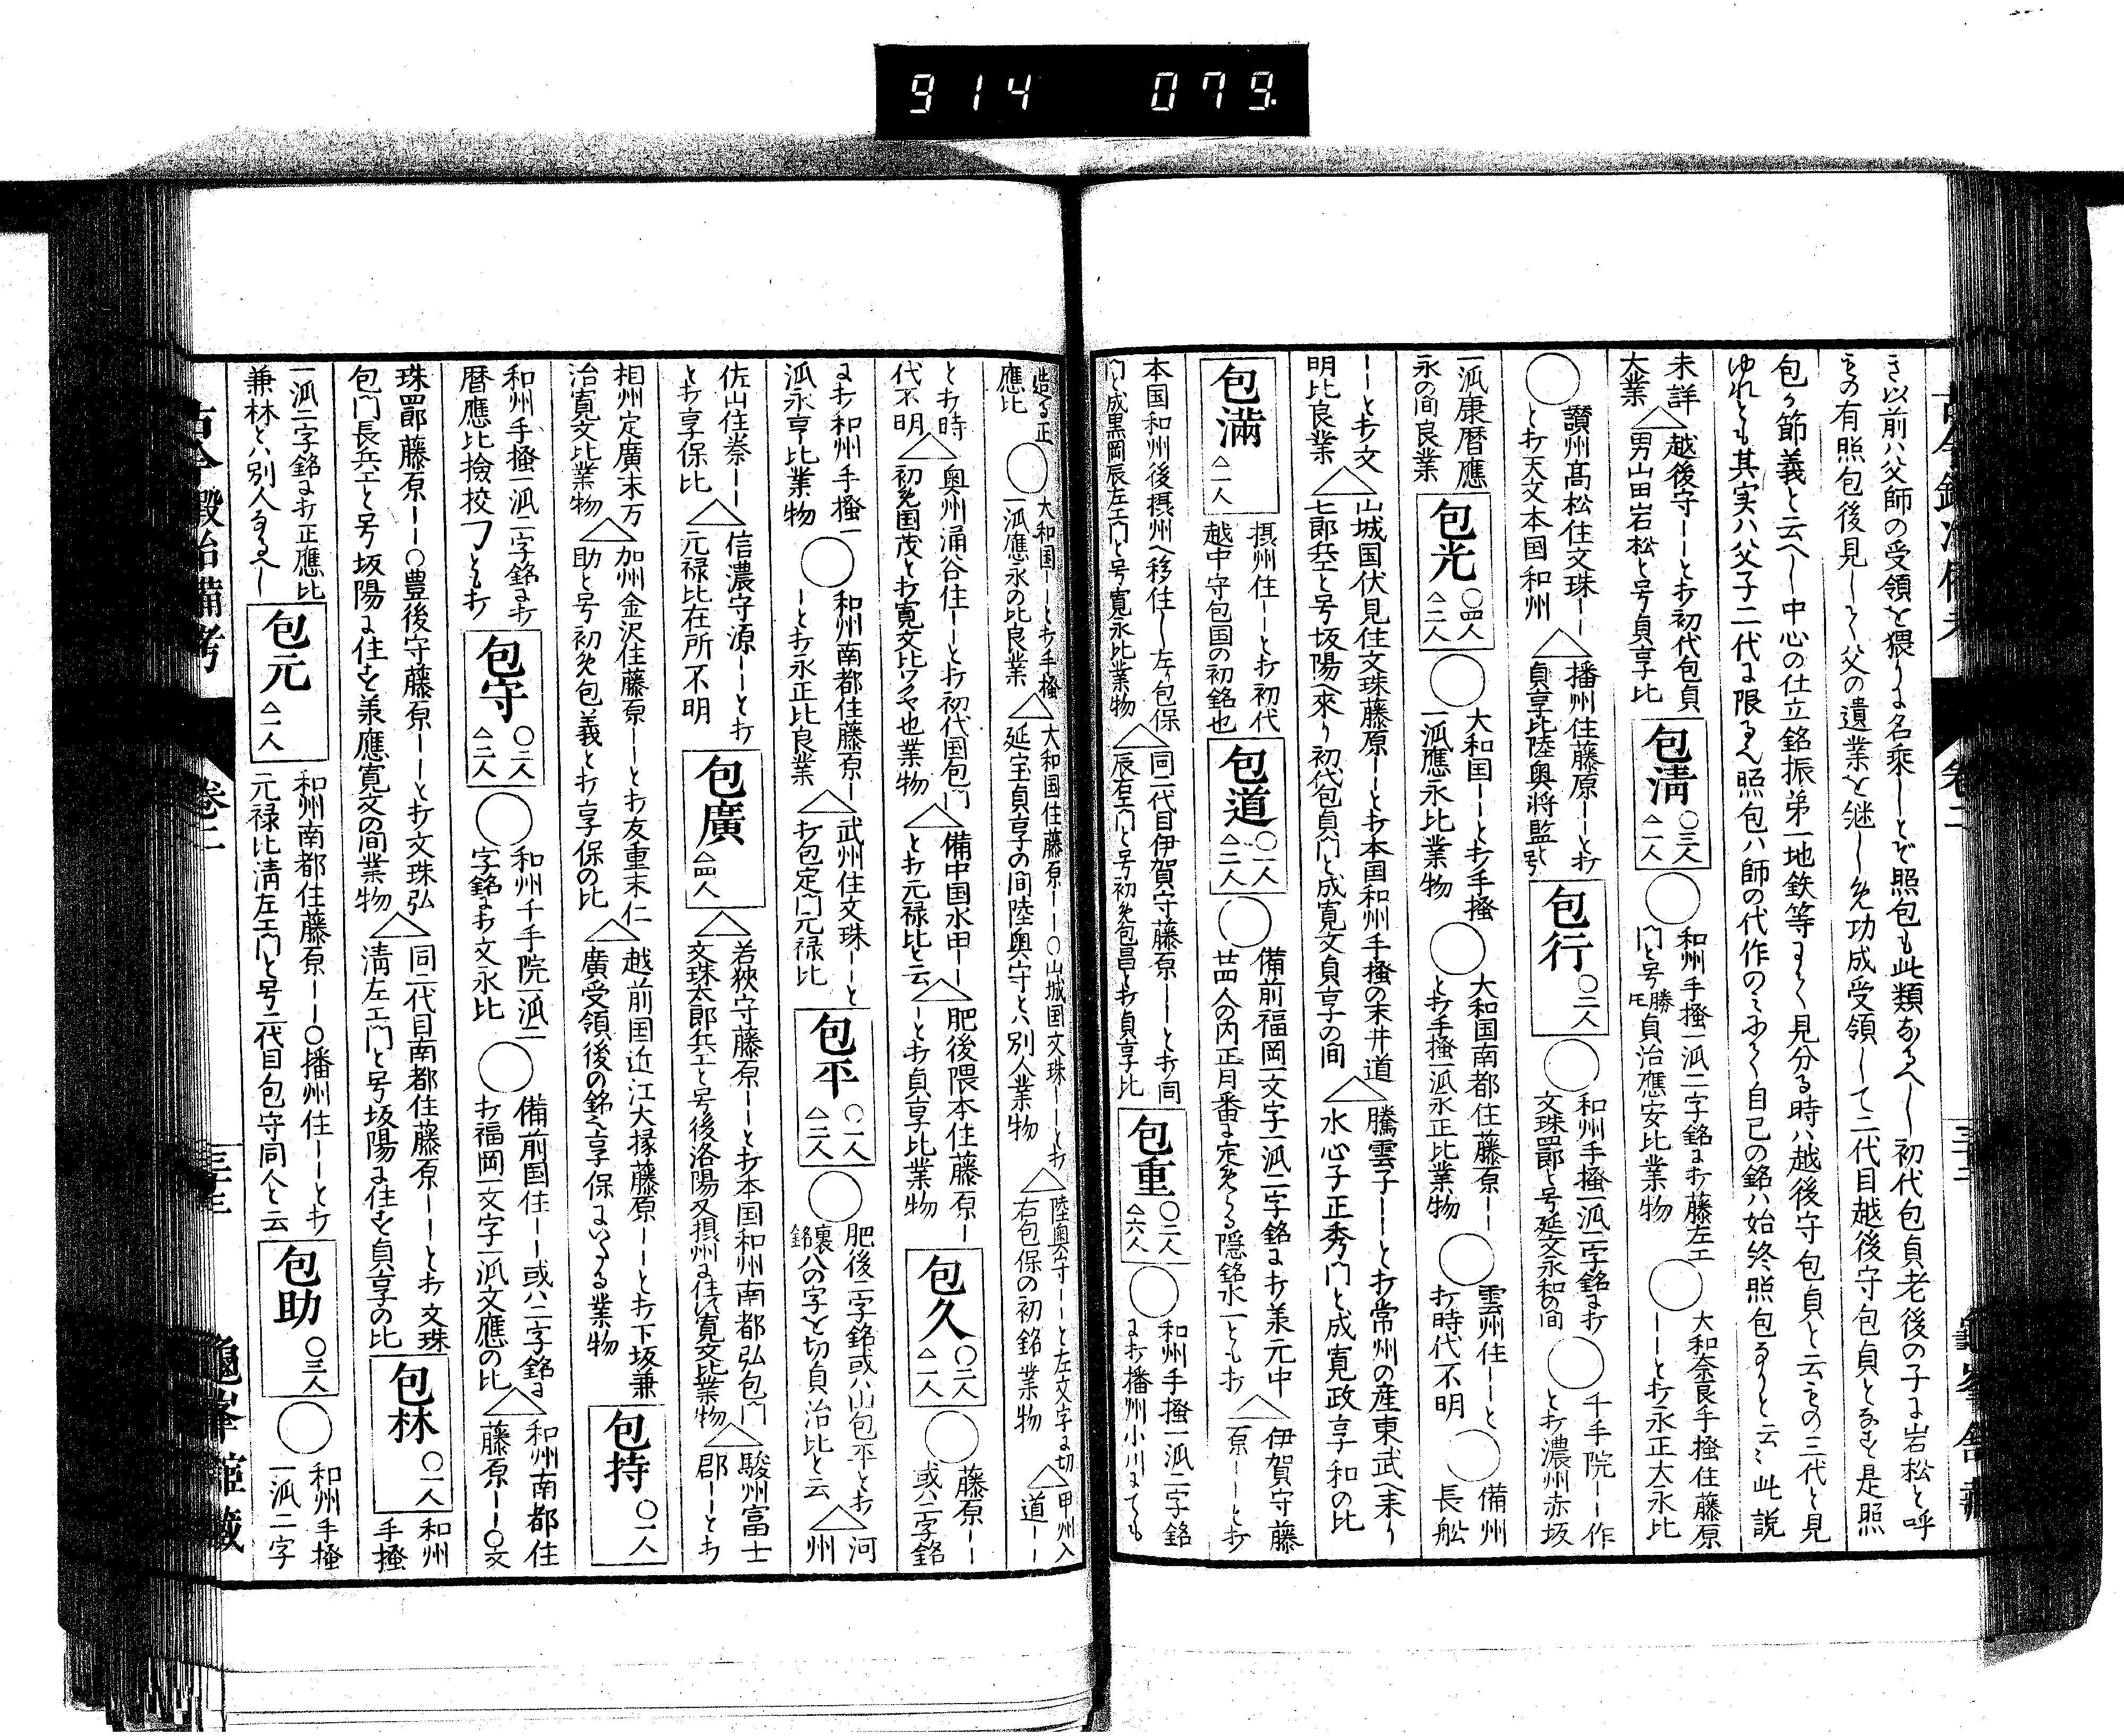 914 079
き以前ハ父師の受領を猥りに名乗ーとぞ照包も此類なるへー 初代包貞老後の子に岩松と呼
もの有照包後見ーて父の遺業を継ーめ功成受領ーて二代目越後守包貞となす是照
包の節義と云へー中心の仕立銘振弟一地鉄等まてく見分る時ハ越後守包貞と云もの三代と見
ゆれとも其実ハ父子二代に限るへ照包ハ師の代作のミあく自己の銘ハ始終照包なりと云ミ此説
未詳
大業
△
越後守ーーと打初代包貞
男山田岩松と号貞享比
包清 ○三人 △二人
○
和州手掻一派二字銘に打藤左エ
門と号勝貞治應安比業物
○
大和奈良手掻住藤原
ーーと打永正大永比
○
讃州髙松住文珠ーー
と打天文本国和州
△
播州住藤原ーーと打
貞享比陸奥将監号
包行 ○二人
○
和州手掻一派二字銘に打
文珠四郎と号延文永和の間
○
千手院ーー作
と打濃州赤坂
一派康暦應
永の間良業
包光 ○四人 △二人
○
大和国ーーと打手掻
一派應永比業物
○
大和国南都住藤原ーー
と打手掻一派永正比業物
○
雲州住ーーと
打時代不明
○
備州
長舩
ーーと打文
明比良業
△
山城国伏見住文珠藤原ーーと打本国和州手掻の末井道
七郎兵エと号坂陽へ來り初代包貞門と成寛文貞享の間
△
騰雲子ーーと打常州の産東武へ来り
水心子正秀門と成寛政享和の比
包滿 △一人
摂州住ーーと打初代
越中守包国の初銘也
包道 ○一人 △二人
○
備前福岡一文字一派二字銘に打兼元中
廿四人の内正月番に定めらる隠銘水一とも打
△
伊賀守藤
原ーーと打
本国和州後摂州へ移住ー左り包保
門と成黒岡辰左エ門と号寛永比業物
△
同二代目伊賀守藤原ーーと打同
辰右エ門と号初め包昌と打貞享比
包重 ○二人 △六人
○
和州手掻一派二字銘
に打播州小川にても
造る正
應比
○
大和国ーーと打手掻
一派應永の比良業
△
大和国住藤原ーー○山城国文珠ーーと打
延宝貞享の間陸奥守とハ別人業物
△
陸奥守ーーと左文字に切
右包保の初銘業物
△
甲州入
道ーー
と打時
代不明
△
奥州涌谷住ーーと打初代国包門
初め国茂と打寛文比ワクヤ也業物
△
備中国水田ーー
と打元禄比と云
△
肥後隈本住藤原ー
ーと打貞享比業物
包久 ○二人 △一人
○
藤原ーー
或ハ二字銘
に打和州手掻一
派永享比業物
○
和州南都住藤原ー
ーと打永正比良業
△
武州住文珠ーーと
打包定門元禄比
包平 ○二人 △三人
○
肥後二字銘或ハ山包平と打
銘裏ハの字を切貞治比と云
△
河
州
佐山住崇ーー
と打享保比
△
信濃守源ーーと打
元禄比在所不明
包廣 △四人
△
若狹守藤原ーーと打本国和州南都弘包門
文珠太郎兵エと号後洛陽又摂州に住す寛文比業物
△
駿州富士
郡ーーと打
相州定廣末万
治寛文比業物
△
加州金沢住藤原ーーと打友重末仁
助と号初め包義と打享保の比
△
越前国近江大掾藤原ーーと打下坂兼
廣受領後の銘之享保にいたる業物
包持 ○一人
和州手掻一派二字銘に打
暦應比撿校フとも打
包守 ○三人 △二人
○
和州千手院一派二
字銘に打文永比
○
備前国住ーー或ハ二字銘に
打福岡一文字一派文應の比
△
和州南都住
藤原ーー○文
珠四郎藤原ーー○豊後守藤原ーーと打文珠弘
包門長兵エと号坂陽に住す兼應寛文の間業物
△
同二代目南都住藤原ーーと打文珠
清左エ門と号坂陽に住す貞享の比
包林 ○一人
和州
手掻
一派二字銘に打正應比
兼林とハ別人なるへー
包元 △一人
和州南都住藤原ーー○播州住ーーと打
元禄比清左エ門と号二代目包守同人と云
包助 ○三人
○
和州手掻
一派二字
古今鍛冶備考 卷二 龜峯舘蔵